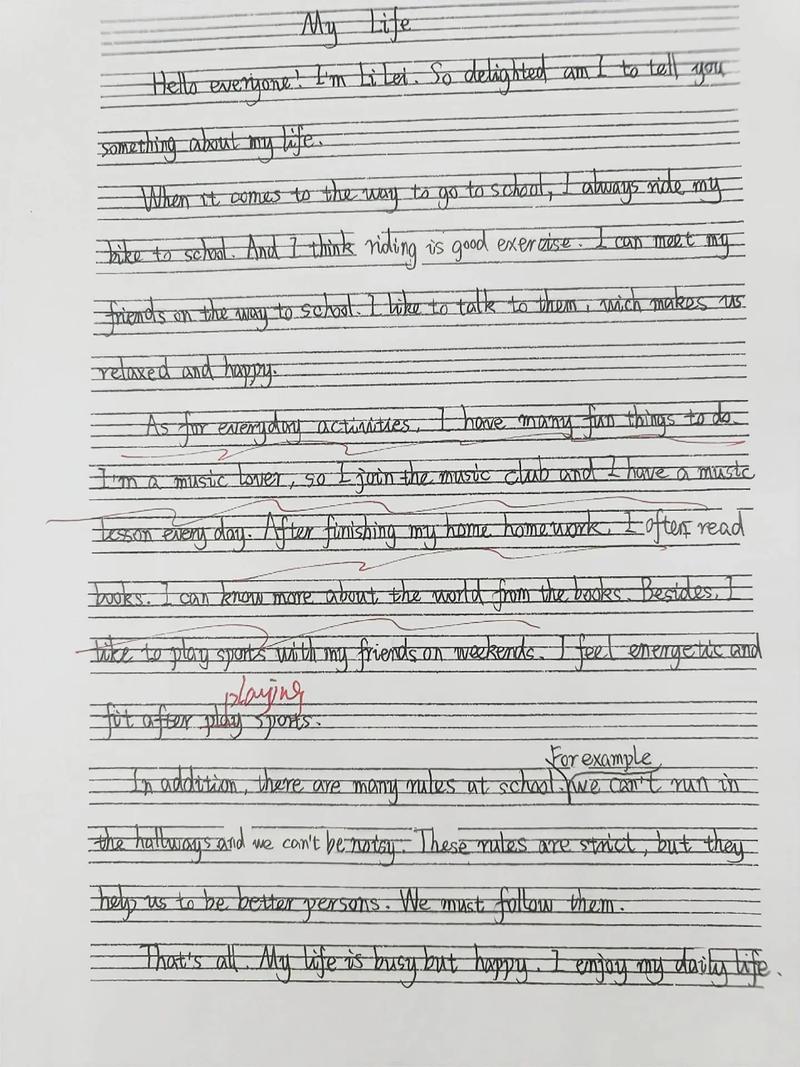 My Life
Hello everyone! I'm Li Lei. So delighted am I to tell you
something about my life.
When it comes to the way to go to school, I always ride my
bike to school. And I think riding is good exercise. I can meet my
friends on the way to school. I like to talk to them, wich makes us
relaxed and happy.
As for everyday activities, I have many fun things to do.
I'm a music lover, so I join the music club and I have a music
lesson every day. After finishing my home homework, I often read
books. I can know more about the world from the books. Besides, I
like to play sports with my friends on weekends. I feel energetic and
playing
fit after play sports.
For example
In addition, there are many rules at school. we can't run in
the hallways and we can't be noisy. These rules are strict, but they
help us to be better persons. We must follow them.
That's all. My life is busy but happy. I enjoy my daily life.